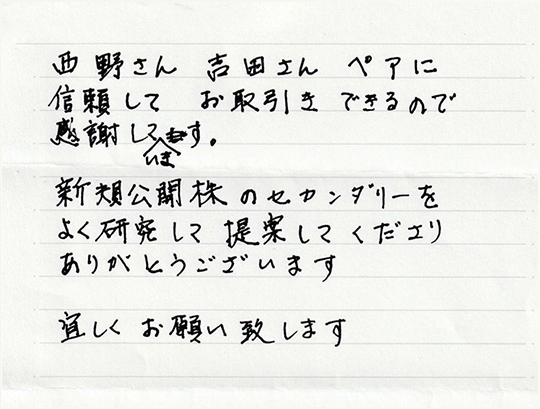 西野さん 吉田さん ペアに
信頼して お取引き できるので
感謝しています。
新規公開株 のセカンダリーを
よく研究して 提案してくださり
ありがとうございます
宜しく お願い致します